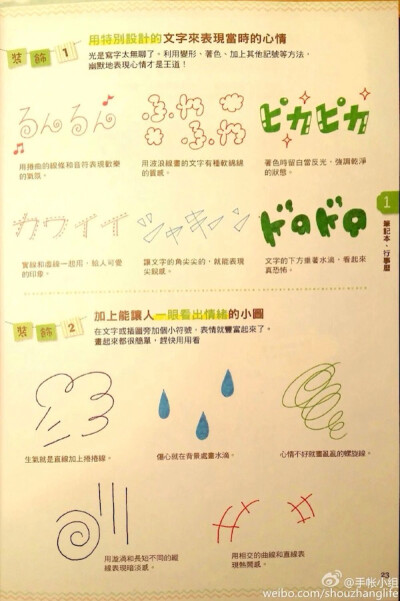 裝飾 1
用特別設計的文字來表現當時的心情
光是寫字太無聊了。利用變形、著色、加上其他記號等方法,
幽默地表現心情才是王道!
るんるん
ふわふわ
ピカピカ
用捲曲的線條和音符表現歡樂
的氣氛。
用波浪線畫的文字有種軟綿綿
的質感。
著色時留白當反光,強調乾淨
的狀態。
カワイイ
ジャキーン
ドロドロ
實線和虛線一起用,給人可愛
的印象。
讓文字的角尖尖的,就能表現
尖銳感。
文字的下方垂著水滴,看起來
真恐怖。
1
筆記本・行事曆
裝飾 2
加上能讓人一眼看出情緒的小圖
在文字或插圖旁加個小符號,表情就豐富起來了。
畫起來都很簡單,趕快用用看
生氣就是直線加上捲捲線。
傷心就在背景處畫水滴。
心情不好就畫亂亂的螺旋線。
用漩渦和長短不同的縱
線表現暗淡感。
用相交的曲線和直線表
現熱鬧感。
23
@手帐小组
weibo.com/shouzhanglife